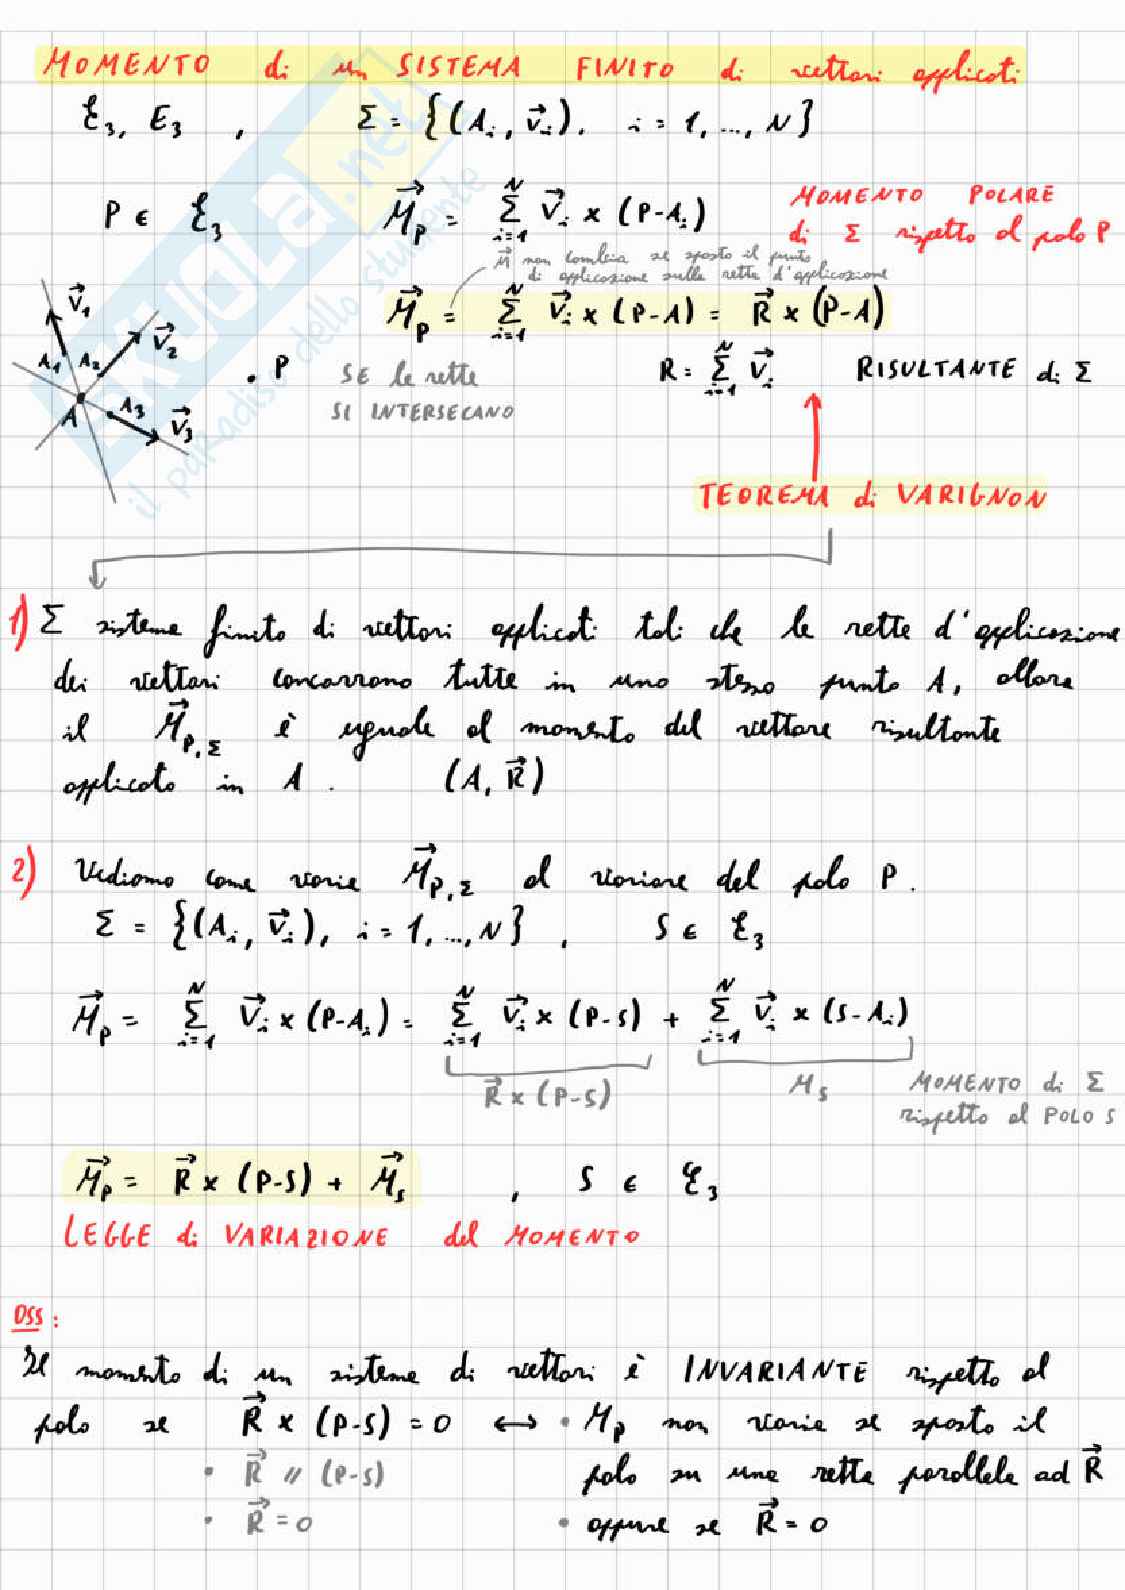 MOMENTO di un SISTEMA FINITO di vettori applicati
ℰ₃, E₃ , Σ = {(Aᵢ, v⃗ᵢ), i = 1, ..., N}
P ∈ ℰ₃ M⃗_P = Σ_{i=1}^N v⃗ᵢ × (P-Aᵢ) MOMENTO POLARE
di Σ rispetto al polo P
M⃗ non cambia se sposto il punto
di applicazione sulla retta d'applicazione
M⃗_P = Σ_{i=1}^N v⃗ᵢ × (P-A) = R⃗ × (P-A)
V⃗₁
V⃗₂
A₁ A₂
A
A₃
V⃗₃
. P
SE le rette
SI INTERSECANO
R = Σ_{i=1}^N v⃗ᵢ RISULTANTE di Σ
TEOREMA di VARIGNON
1) Σ sistema finito di vettori applicati tali che le rette d'applicazione
dei vettori concorrono tutte in uno stesso punto A, allora
il M⃗_{P,Σ} è uguale al momento del vettore risultante
applicato in A. (A, R⃗)
2) Vediamo come varia M⃗_{P,Σ} al variare del polo P.
Σ = {(Aᵢ, v⃗ᵢ), i = 1, ..., N} , S ∈ ℰ₃
M⃗_P = Σ_{i=1}^N v⃗ᵢ × (P-Aᵢ) = Σ_{i=1}^N v⃗ᵢ × (P-S) + Σ_{i=1}^N v⃗ᵢ × (S-Aᵢ)
R⃗ × (P-S) M_S MOMENTO di Σ
rispetto al POLO S
M⃗_P = R⃗ × (P-S) + M⃗_S , S ∈ ℰ₃
LEGGE di VARIAZIONE del MOMENTO
OSS:
Il momento di un sistema di vettori è INVARIANTE rispetto al
polo se R⃗ × (P-S) = 0 ↔ • M_P non varia se sposto il
• R⃗ // (P-S) polo su una retta parallela ad R⃗
• R⃗ = 0 • oppure se R⃗ = 0
SKUOLA.net
il paradiso dello studente